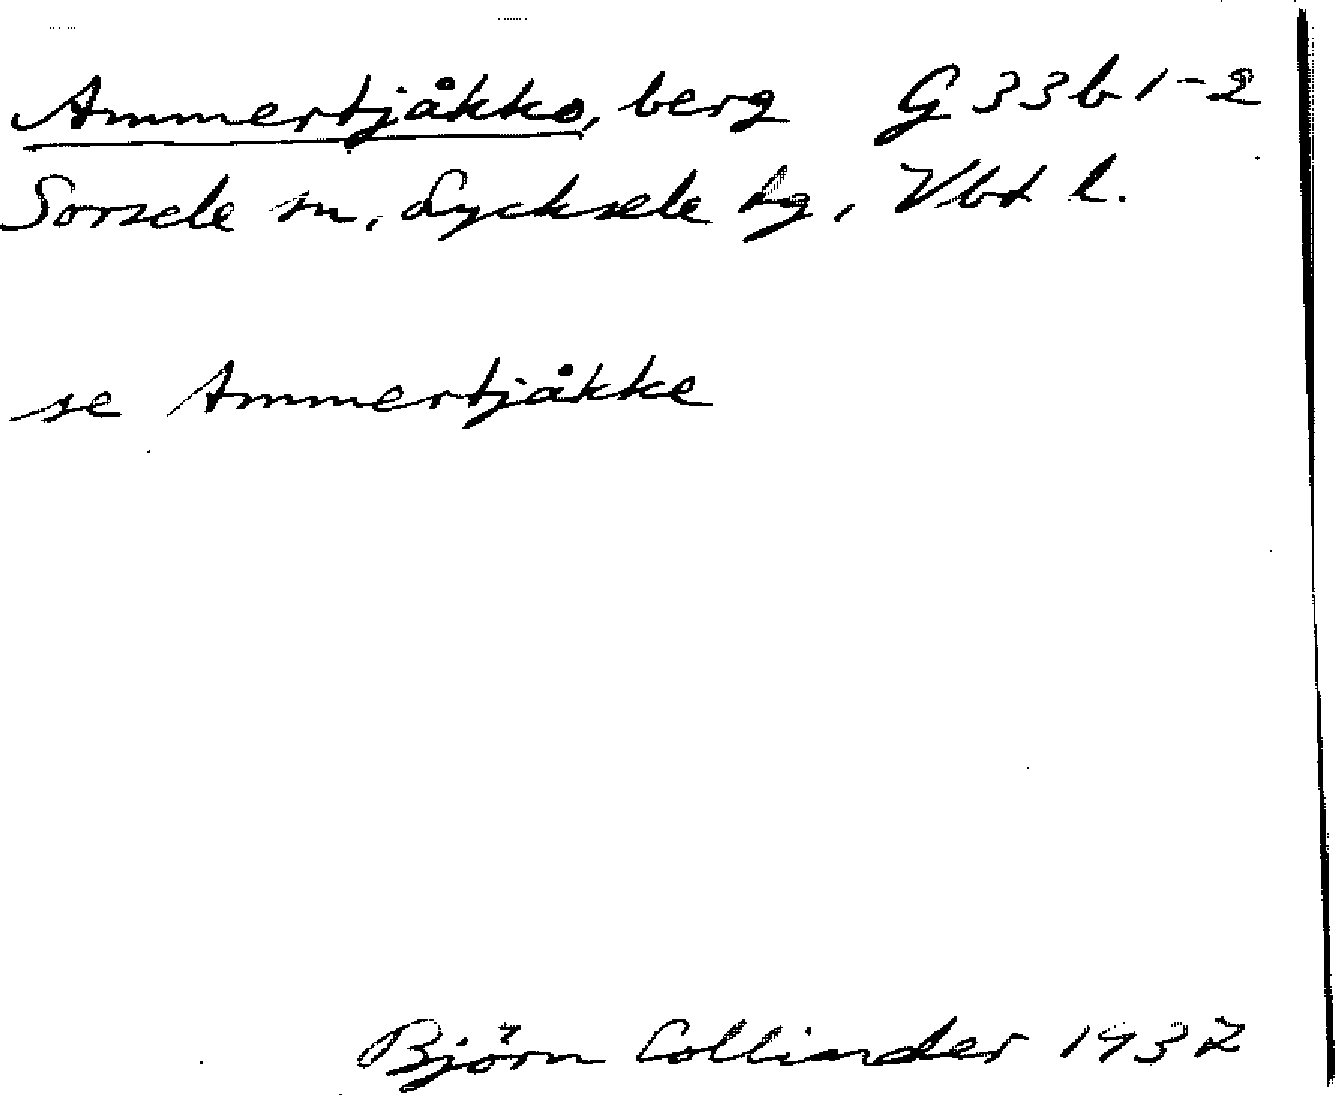 Ammertjåkko, berg G 33 b 1-2
Sorsele sn, Lycksele lg, Vbt l.
se Ammertjåkke
Björn Collinder 1937